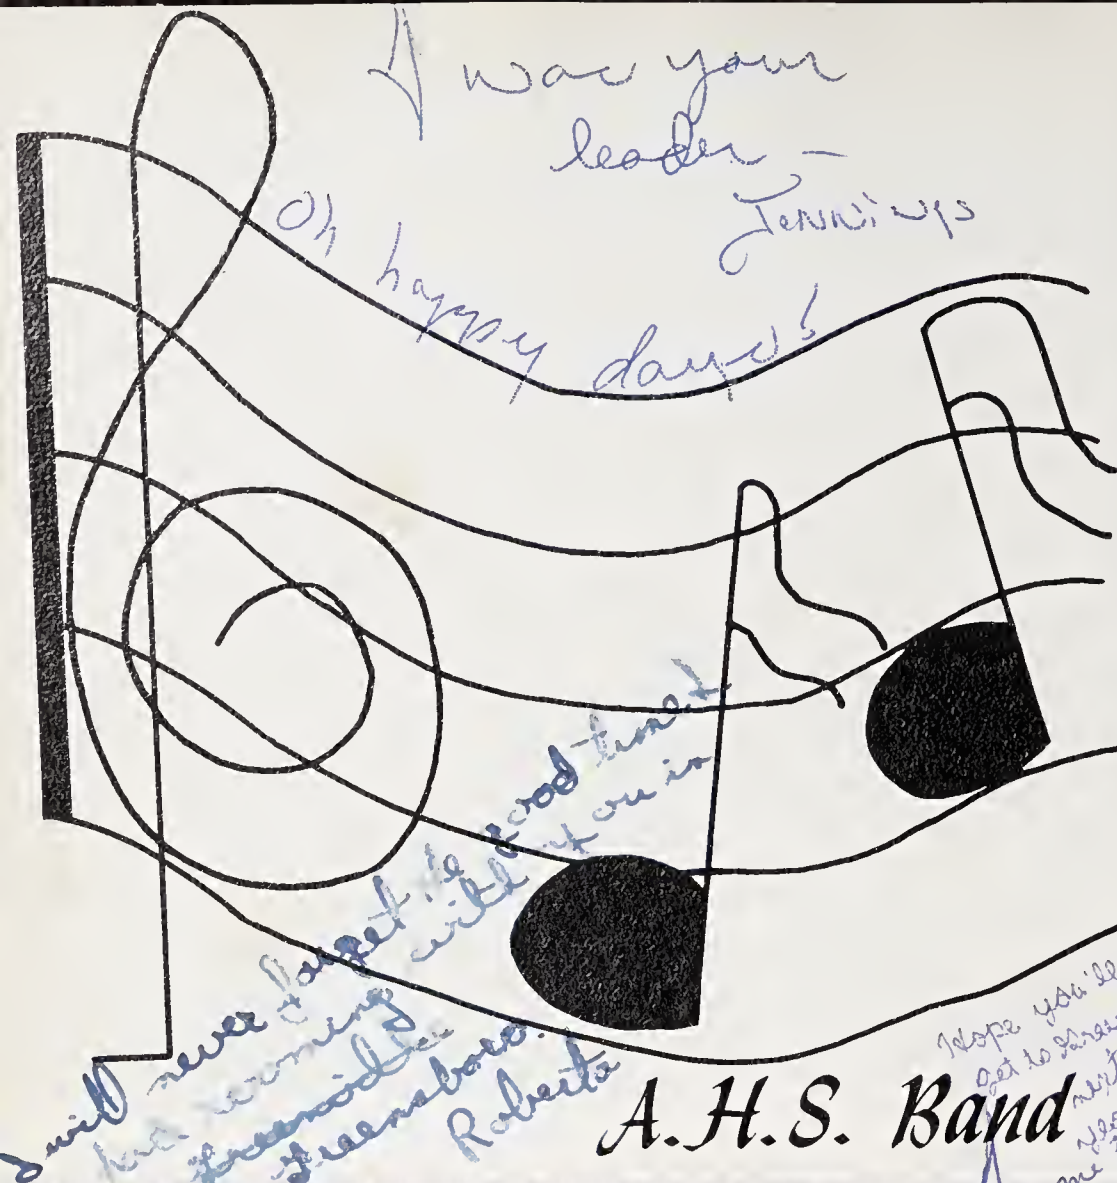 I was your
leader –
Jennings
Oh happy days!
I will never forget the good times I
had running with you in
Greensboro.
Roberta
A.H.S. Band
Hope you'll
get to
next